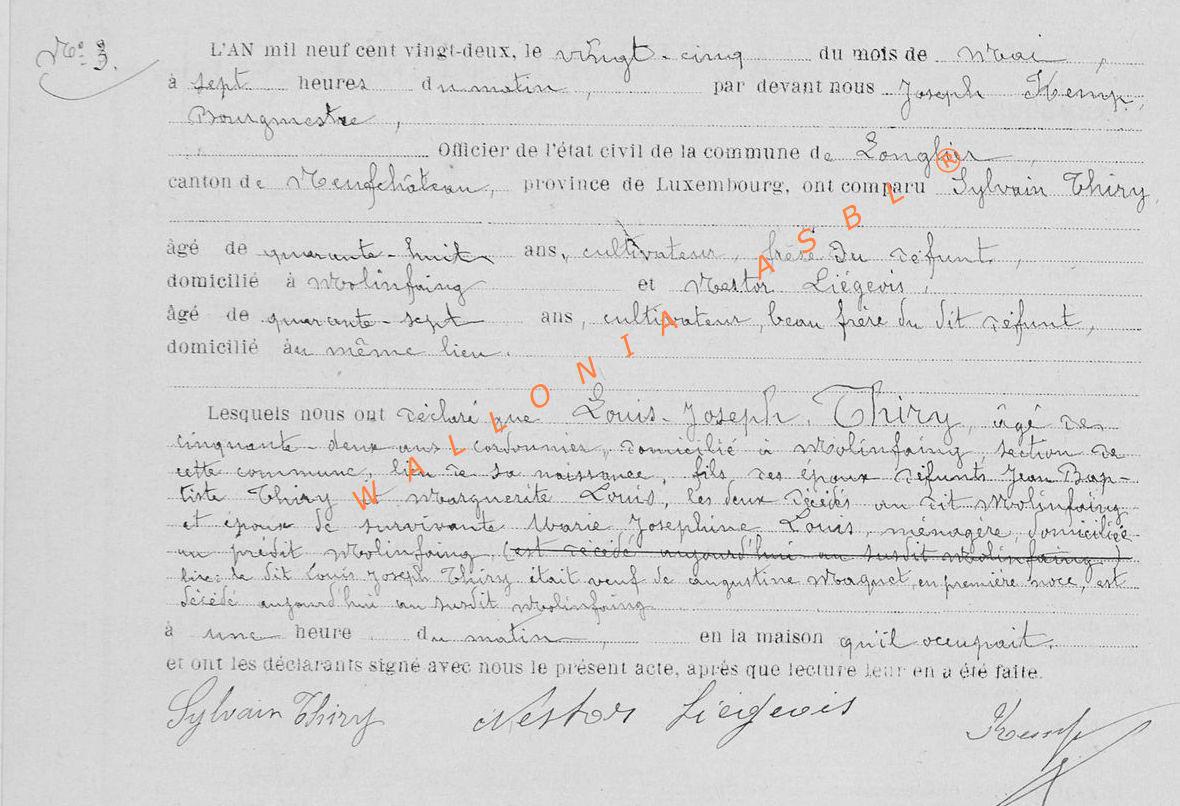 No: 3. L'AN mil neuf cent vingt-deux, le vingt-cinq du mois de Mai,
à sept heures du matin, par devant nous Joseph Kemp,
Bourgmestre,
Officier de l'état civil de la commune de Longlier,
canton de Neufchâteau, province de Luxembourg, ont comparu Sylvain Thiry,
âgé de quarante-huit ans, cultivateur, frère du défunt,
domicilié à Molinfaing et Nestor Liégeois,
âgé de quarante-sept ans, cultivateur, beau frère du dit défunt,
domicilié au même lieu.
Lesquels nous ont déclaré que Louis-Joseph Thiry, âgé de
cinquante-deux ans cordonnier, domicilié à Molinfaing, section de
cette commune, lieu de sa naissance, fils des époux défunts Jean Bap-
tiste Thiry et Marguerite Louis, les deux décédés au dit Molinfaing
et époux de survivante Marie Joséphine Louis, ménagère, domiciliée
au prédit Molinfaing (est décédé aujourd'hui au susdit Molinfaing)
lire: le dit Louis Joseph Thiry était veuf de Augustine Maquet, en première noce, est
décédé aujourd'hui au susdit Molinfaing
à une heure du matin, en la maison qu'il occupait.
et ont les déclarants signé avec nous le présent acte, après que lecture leur en a été faite.
Sylvain Thiry Nestor Liégeois Kemp
WALLONIA ASBL ®